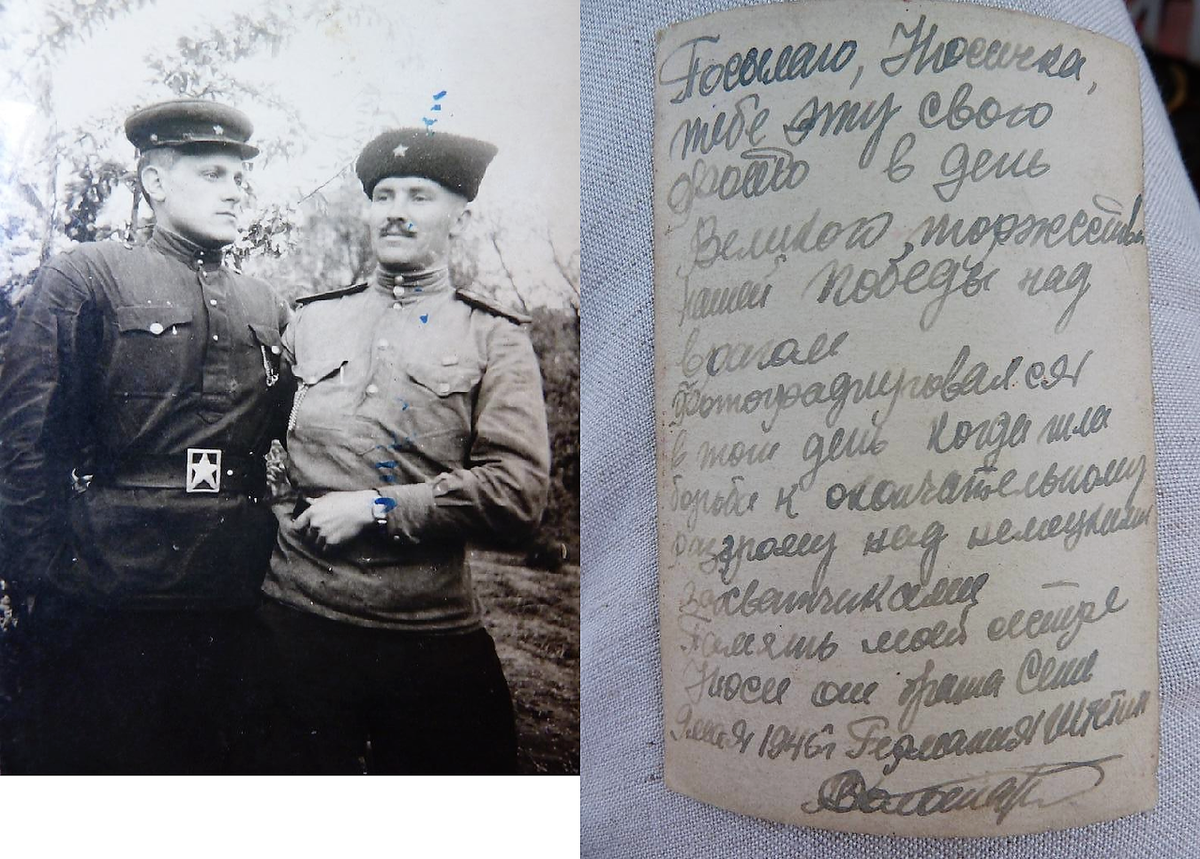 Посылаю, Нюсичка,
тебе эту свою
фото в день
Великого торжества
нашей победы над
врагом
Фотографировался
в тот день когда шла
борьба к окончательному
разгрому над немецкими
захватчиками
Память моей сестре
Нюси от брата Сени
9 мая 1946 г Германия Штетин